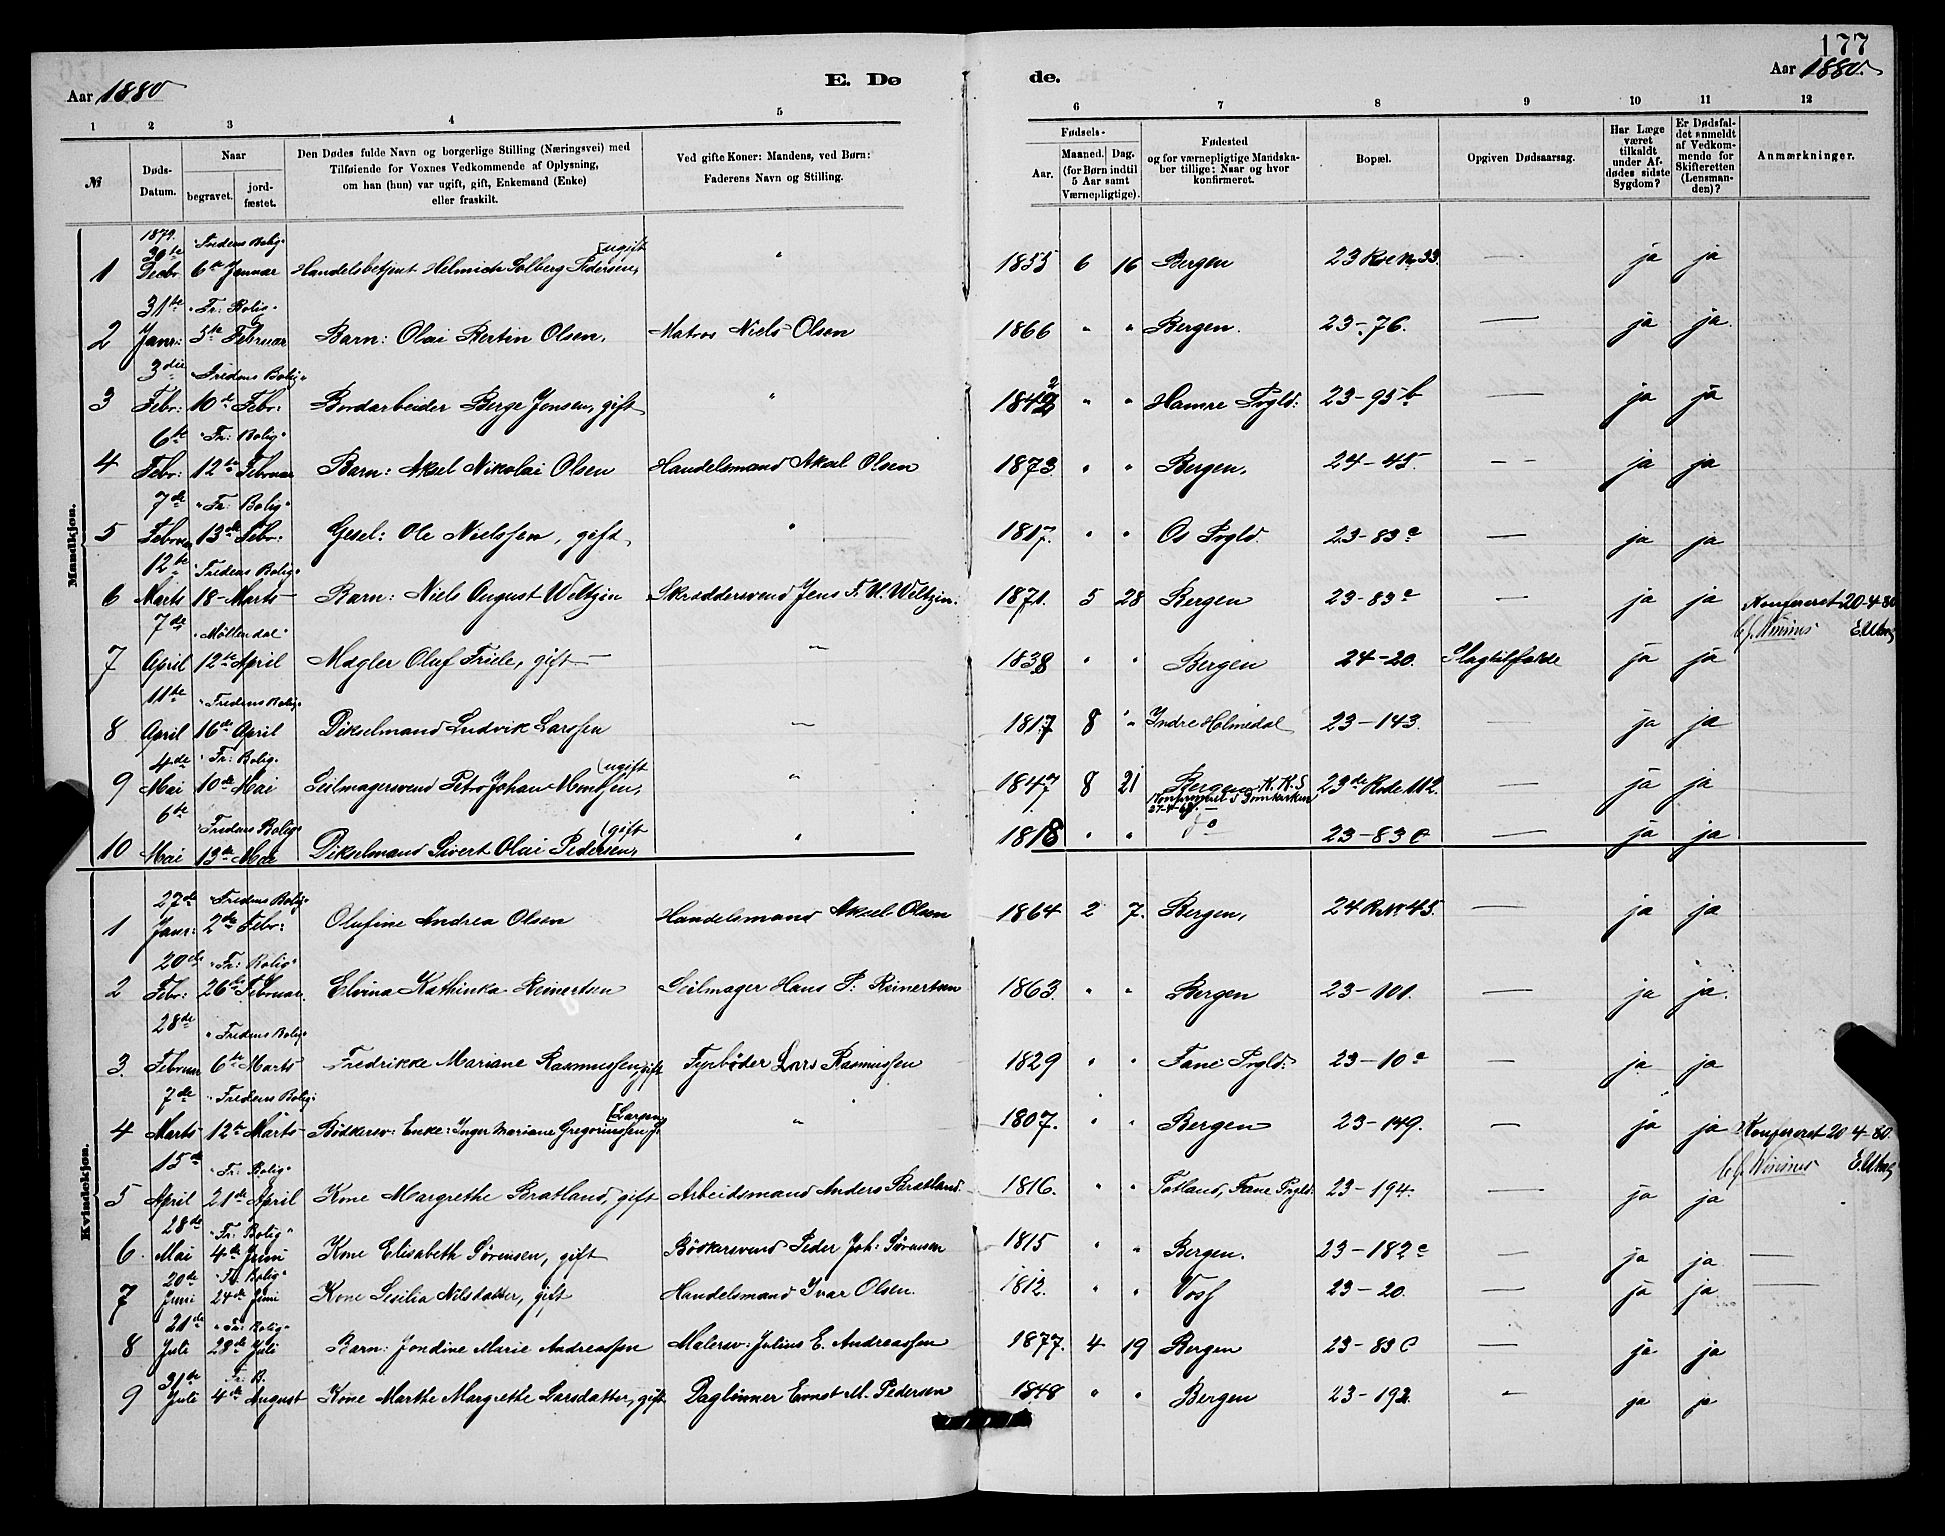 177
Aar 1880
E. Dø
de.
Aar 1880.
1 2 3 4 5 6 7 8 9 10 11 12
№
Døds-
Datum.
Naar
begravet.
jord-
fæstet.
Den Dødes fulde Navn og borgerlige Stilling (Næringsvei) med
Tilføiende for Voxnes Vedkommende af Oplysning,
om han (hun) var ugift, gift, Enkemand (Enke)
eller fraskilt.
Ved gifte Koner: Mandens, ved Børn:
Faderens Navn og Stilling.
Fødsels-
Aar.
Maaned. Dag.
(for Børn indtil
5 Aar samt
Værnepligtige).
Fødested
og for værnepligtige Mandska-
ber tillige: Naar og hvor
konfirmeret.
Bopæl.
Opgiven Dødsaarsag.
Har Læge
været
tilkaldt
under Af-
dødes sidste
Sygdom?
Er Dødsfal-
det anmeldt
af Vedkom-
mende for
Skifteretten
(Lensman-
den)?
Anmærkninger.
Mandkjøn.
1879.
30te "Fredens Bolig" (ugift
1 Decbr. 6te Januar Handelsbetjent Helmich Solberg Pedersen, " 1855 6 16 Bergen 23 Rode No 33. — ja ja
31te "Fr: Bolig"
2 Janr: 5te Februar Barn: Olai Bertin Olsen, Matros Niels Olsen 1866 " " Bergen. 23-76. — ja ja
3die "Fredens Bolig"
3 Febr: 10de Febr: Bordarbeider Berge Jonsen, gift " 1842 " " Hamre Prgld: 23-95 b — ja ja
6te "Fr: Bolig"
4 Febr: 12te Februar Barn: Aksel Nikolai Olsen Handelsmand Aksel Olsen 1873. " " Bergen, 24-45. — ja ja
7de "Fr: Bolig"
5 Februar 13de Febr: Gesel: Ole Nielssen, gift, " 1817. " " Os Prgld. 23-83c — ja ja
12te "Fredens Bolig"
6 Marts 18- Marts Barn: Niels August Weltzin Skræddersvend Jens F. W. Weltzin. 1871. 5 28 Bergen 23-83c — ja ja Konfereret 20-4-80
7de "Møllendal"
7 April 12te April Mægler Oluf Friele, gift — " 1838 " " Bergen 24-20. Slagtilfælde ja ja
11te "Fredens Bolig"
8 April 16de April Dikselmand Ludvik Larssen " 1817 8 " Indre Holmedal 23-143. — ja ja
4de "Fr: Bolig" (ugift
9 Mai 10de Mai Seilmagersvend Petro Johan Mentsen, " 1847 8 21 Bergen K. K. S 23de Rode 112. ja ja
Konfirmeret i Domkirken
6te "Fredens Bolig" (gift
10 Mai 13de Mai Dikselmand Sivert Olai Pedersen, " 1818 " " do 23-83 c — ja ja
Kvindekjøn.
27de "Fredens Bolig"
1 Janr: 2de Febr: Olufine Andrea Olsen Handelsmand Aksel Olsen 1864 2 7. Bergen, 24 R. No 45. — ja ja
20de "Fr: Bolig"
2 Febr: 26de Februar. Elvina Kathinka Reinertsen Seilmager Hans P. Reinertsen 1863. " " Bergen 23-101. — ja ja.
28de "Fredens Bolig"
3. Februar 6te Marts Fredrikke Mariane Rasmussen, gift Fyrbøder Lars Rasmussen 1829 " " Fane Prgld: 23-10c — ja ja
7de "Fredens Bolig" (Larsen
4 Marts 12te Marts Bødkersv: Enke: Inger Mariane Gregoriussen f. " 1807. " " Bergen 23-149. — ja ja Konfereret 20 4-80.
15de "Fr: Bolig"
5 April 21de April Kone Margrethe Bratland, gift Arbeidsmand Anders Bratland. 1816. " " Totland, Fane Prgld. 23-194. — ja ja
28de "Fr: Bolig"
6. Mai 4de Juni Kone Elisabeth Sørensen, gift Bödkersvend Peder Joh: Sörensen 1815 " " Bergen. 23-182c — ja ja —
20de "Fr: Bolig"
7 Juni 24de Juni Kone Sesilia Nilsdatter, gift Handelsmand Ivar Olsen. 1812. " " Voss 23-20. — ja ja —
21de "Fr: Bolig"
8 Juli 28de Juli Barn: Jondine Marie Andreassen Malersv: Julius E. Andreassen 1877. 4 19 Bergen 23-83 C — ja ja
31te Fr: B.
9 Juli 4de August Kone Marthe Margrethe Larsdatter, gift Daglønner Ernst M. Pedersen 1848 " " Bergen 23-192. " ja ja